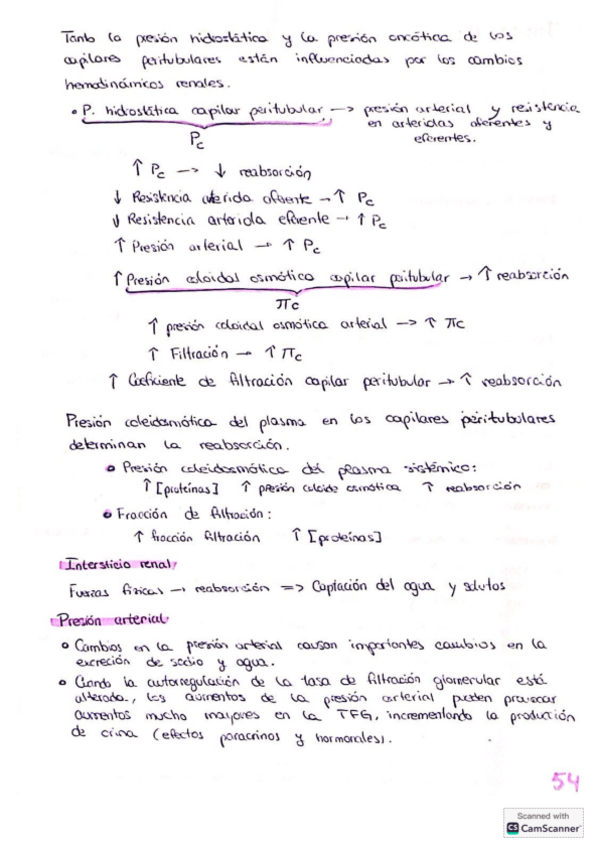 Tanto la presión hidrostática y la presión oncótica de los
capilares peritubulares están influenciadas por los cambios
hemodinámicos renales.
• P. hidrostática capilar peritubular → presión arterial y resistencia
en arteriolas aferentes y
eferentes.
Pc
↑ Pc → ↓ reabsorción
↓ Resistencia arteriola aferente → ↑ Pc
↓ Resistencia arteriola eferente → ↑ Pc
↑ Presión arterial → ↑ Pc
↑ Presión coloidal osmótica capilar peritubular → ↑ reabsorción
πc
↑ presión coloidal osmótica arterial → ↑ πc
↑ Filtración → ↑ πc
↑ Coeficiente de filtración capilar peritubular → ↑ reabsorción
Presión coleidosmótica del plasma en los capilares peritubulares
determinan la reabsorción.
• Presión coleidosmótica del plasma sistémico:
↑ [proteínas] ↑ presión coloide osmótica ↑ reabsorción
• Fracción de filtración:
↑ fracción filtración ↑ [proteínas]
Intersticio renal
Fuerzas físicas → reabsorción => Captación del agua y solutos
Presión arterial
• Cambios en la presión arterial causan importantes cambios en la
excreción de sodio y agua.
• Cuando la autorregulación de la tasa de filtración glomerular está
alterada, los aumentos de la presión arterial pueden provocar
aumentos mucho mayores en la TFG, incrementando la producción
de orina (efectos paracrinos y hormonales).
54
Scanned with
CS CamScanner